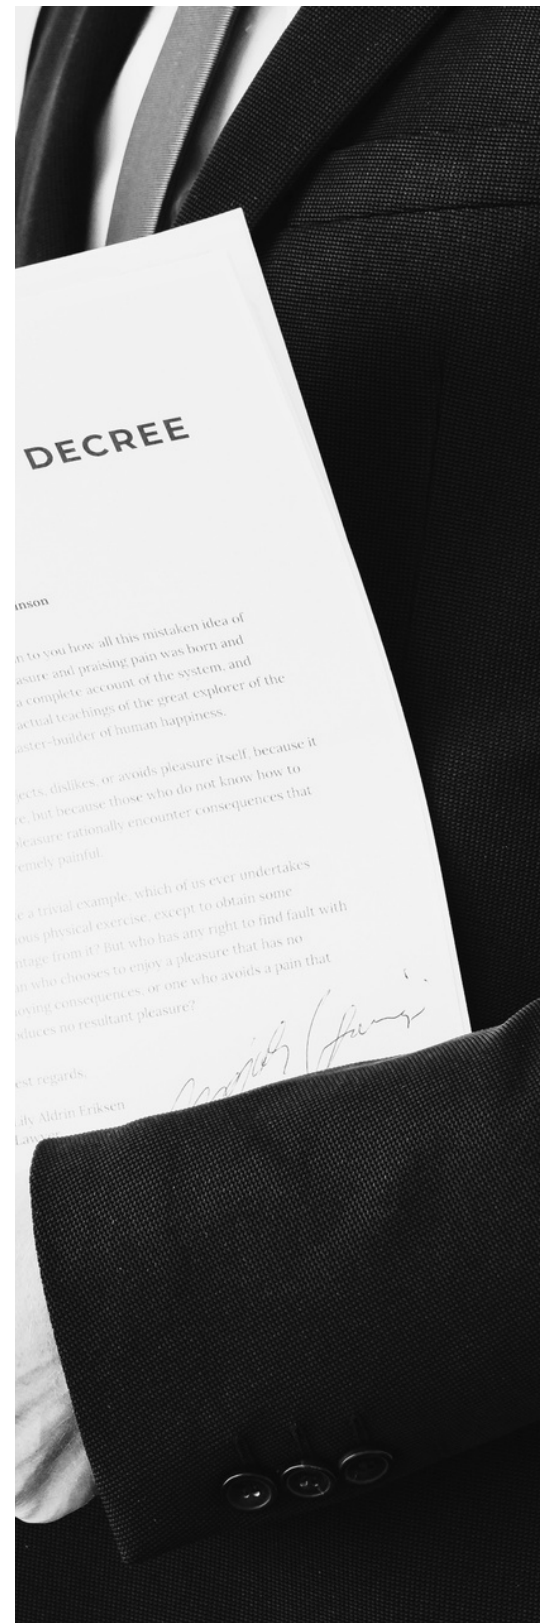 DECREE
inson
n to you how all this mistaken idea of
asure and praising pain was born and
a complete account of the system, and
actual teachings of the great explorer of the
aster-builder of human happiness.
jects, dislikes, or avoids pleasure itself, because it
re, but because those who do not know how to
pleasure rationally encounter consequences that
remely painful.
e a trivial example, which of us ever undertakes
ious physical exercise, except to obtain some
ntage from it? But who has any right to find fault with
n who chooses to enjoy a pleasure that has no
oying consequences, or one who avoids a pain that
oduces no resultant pleasure?
est regards,
Aldrin Eriksen
Lawyer